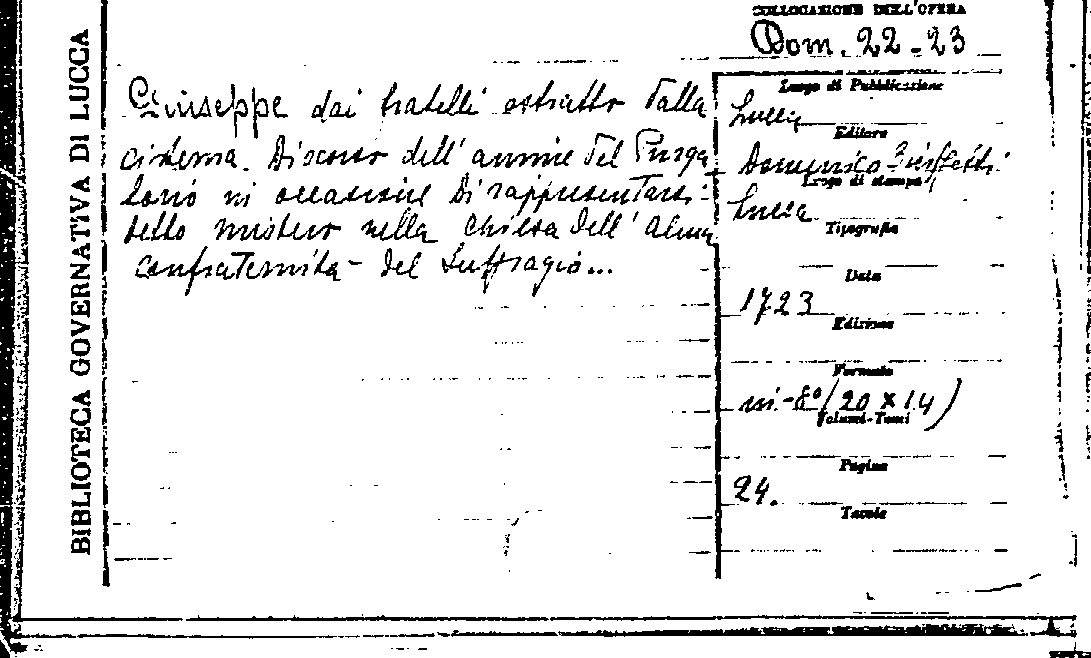 BIBLIOTECA GOVERNATIVA DI LUCCA
COLLOCAZIONE DELL'OPERA
Dom. 22-23
Giuseppe dai fratelli estratto dalla
cisterna. Discorso dell'anime del Purga
torio in occasione di rappresentarsi
detto mistero nella chiesa dell'alma
confraternita del Suffragio...
Luogo di Pubblicazione
Lucca
Editore
Domenico
Luogo di stampa
Lucca
Tipografia
Data
1723
Edizione
Formato
in-8º (20 x 14)
Volumi-Tomi
Pagine
24.
Tavole